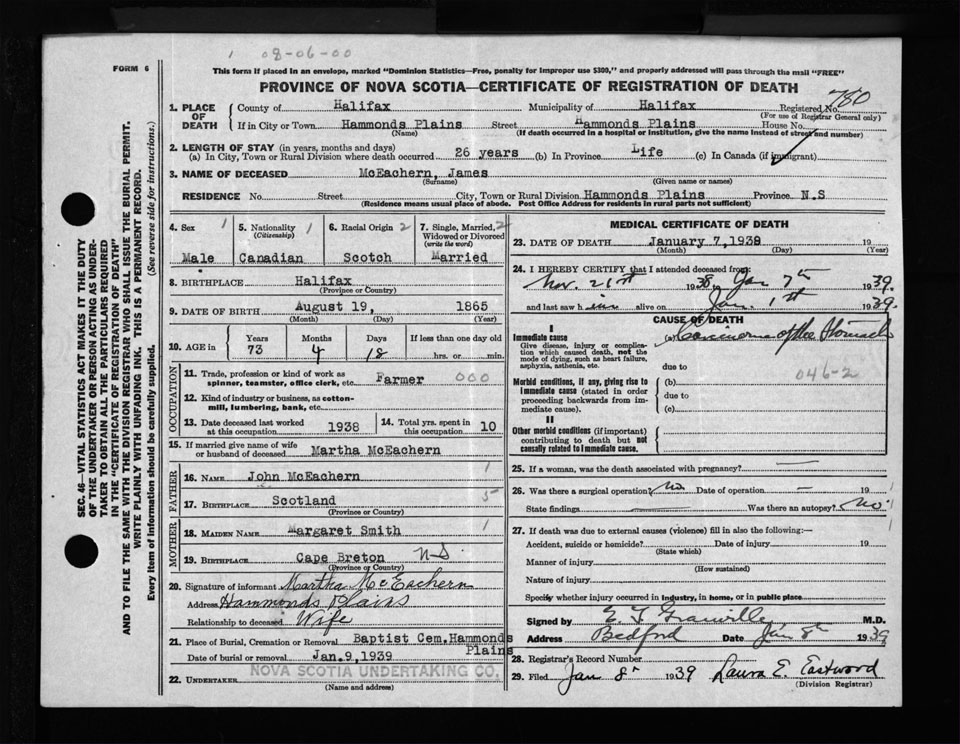 1 08-06-00
FORM 6
This form if placed in an envelope, marked "Dominion Statistics—Free, penalty for improper use $300," and properly addressed will pass through the mail "FREE"
PROVINCE OF NOVA SCOTIA—CERTIFICATE OF REGISTRATION OF DEATH
SEC. 46—VITAL STATISTICS ACT MAKES IT THE DUTY
OF THE UNDERTAKER OR PERSON ACTING AS UNDER-
TAKER TO OBTAIN ALL THE PARTICULARS REQUIRED
IN THE "CERTIFICATE OF REGISTRATION OF DEATH"
AND TO FILE THE SAME WITH THE DIVISION REGISTRAR WHO SHALL ISSUE THE BURIAL PERMIT.
WRITE PLAINLY WITH UNFADING INK. THIS IS A PERMANENT RECORD.
Every item of information should be carefully supplied. (See reverse side for instructions.)
1. PLACE OF DEATH County of Halifax Municipality of Halifax Registered No. 780
(For use of Registrar General only)
If in City or Town Hammonds Plains Street Hammonds Plains House No.
(Name) (If death occurred in a hospital or institution, give the name instead of street and number)
2. LENGTH OF STAY (in years, months and days)
(a) In City, Town or Rural Division where death occurred 26 years (b) In Province Life (c) In Canada (if immigrant)
3. NAME OF DECEASED McEachern, James
(Surname) (Given name or names)
RESIDENCE No. Street City, Town or Rural Division Hammonds Plains Province N.S
(Residence means usual place of abode. Post Office Address for residents in rural parts not sufficient)
4. Sex 1 5. Nationality 1 6. Racial Origin 2 7. Single, Married, 2
(Citizenship) Widowed or Divorced
(write the word)
Male Canadian Scotch Married
8. BIRTHPLACE Halifax
(Province or Country)
9. DATE OF BIRTH August 19, 1865
(Month) (Day) (Year)
10. AGE in Years Months Days If less than one day old
73 4 18 hrs. or min.
OCCUPATION
11. Trade, profession or kind of work as
spinner, teamster, office clerk, etc. Farmer 000
12. Kind of industry or business, as cotton-
mill, lumbering, bank, etc.
13. Date deceased last worked at this occupation 1938 14. Total yrs. spent in this occupation 10
15. If married give name of wife
or husband of deceased Martha McEachern
FATHER
16. NAME John McEachern 1
17. BIRTHPLACE Scotland 5
(Province or Country)
MOTHER
18. MAIDEN NAME Margaret Smith 1
19. BIRTHPLACE Cape Breton N.S
(Province or Country)
20. Signature of informant Martha McEachern
Address Hammonds Plains
Relationship to deceased Wife
21. Place of Burial, Cremation or Removal Baptist Cem. Hammonds Plains
Date of burial or removal Jan. 9, 1939
22. UNDERTAKER NOVA SCOTIA UNDERTAKING CO.
(Name and address)
MEDICAL CERTIFICATE OF DEATH
23. DATE OF DEATH January 7, 1938 19
(Month) (Day) (Year)
24. I HEREBY CERTIFY that I attended deceased from:
Nov. 21st 1938, Jan 7th 1939
and last saw h im alive on Jan. 1st 1939.
CAUSE OF DEATH
I
Immediate cause (a) Carcinoma of the Stomach
Give disease, injury or complica-
tion which caused death, not the
mode of dying, such as heart failure,
asphyxia, asthenia, etc.
due to
046-2
Morbid conditions, if any, giving rise to (b)
immediate cause (stated in order due to
proceeding backwards from im-
mediate cause). (c)
II
Other morbid conditions (if important)
contributing to death but not
causally related to immediate cause.
25. If a woman, was the death associated with pregnancy? —
26. Was there a surgical operation? No Date of operation — 19
State findings — Was there an autopsy? No
27. If death was due to external causes (violence) fill in also the following:—
Accident, suicide or homicide? Date of injury 19
(State which)
Manner of injury
(How sustained)
Nature of injury
Specify whether injury occurred in industry, in home, or in public place
Signed by E. T. Granville M.D.
Address Bedford Date Jan 8th 1939
28. Registrar's Record Number
29. Filed Jan 8th 1939 Laura E. Eastwood
(Division Registrar)